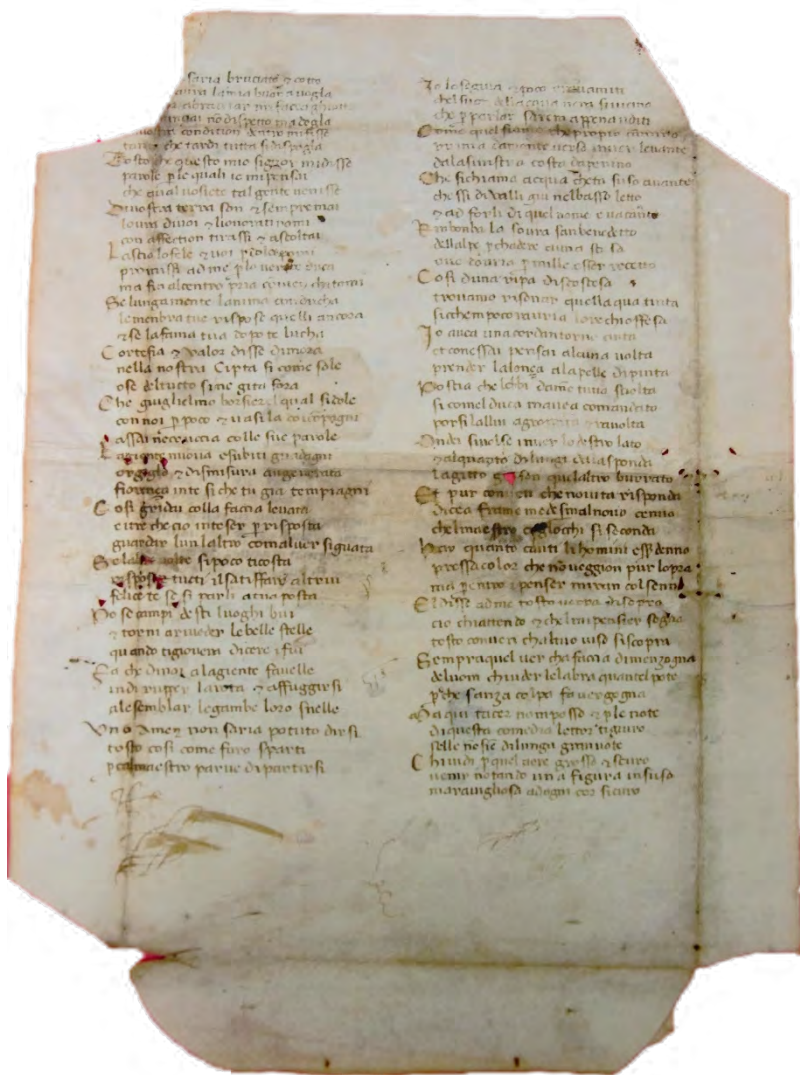 saria bruciato & cotto
paura la mia buona voglia
abracciar mi facea ghiotto
cominciai nō dispetto ma doglia
condition dentro mi fisse
tanto che tardi tutta si dispoglia
Tosto che questo mio signor mi disse
parole p le quali io mi pensai
che qual voi siete tal gente venisse
Di vostra terra son & sempre mai
lovra di voi & li honorati nomi
con affection ritrassi & ascoltai
Lascio lo fele & voi p dolci pomi
promissi ad me p lo verace duca
ma fia al centro pria convien chi tomi
Se lungamente lanima conducha
le menbra tue rispose quelli ancora
& se la fama tua dopo te lucha
Cortesia & valor disse dimora
nella nostra cipta si come sole
o se del tucto si ne gita fora
Che guiglielmo borsier el qual si dole
con noi p poco & va si la coi compagni
assai ne cruccia colle sue parole
La gente nuova e subiti guadagni
orgoglio & dismisura an generata
fiorença in te si che tu gia ten piagni
Cosi gridai colla faccia levata
e i tre che cio inteser p risposta
guardar lun laltro comal ver si guata
Se laltre volte si poco ti costa
risposer tucti il satisffare altrui
felice te se si parli a tua posta
Po se campi de sti luoghi bui
& torni a riveder le belle stelle
quando ti gioverà dicere i fui
Fa che di noi a la giente favelle
indi rupper la rota & a ffuggirsi
ale semblar le gambe loro snelle
Un o Amen non saria potuto dirsi
tosto cosi come furo sparti
p chal maestro parve di partirsi
Io lo seguia & poco eravamo iti
chel suon dellacqua nera si vicino
che p parlar saremo appena uditi
Come quel fiume che proprio camino
prima da monte verso inver levante
dala sinistra costa dapenino
Che si chiama acqua cheta suso avante
che ssi divalli giu nel basso letto
& ad forli di quel nome e vacante
Rimbomba la sovra san benedetto
dell alpe p chadere ad una scesa
ove dovria p mille esser recetto
Cosi duna ripa discoscesa
trovamo risonar quella qua tinta
si chen poco ora avria lorecchi offesa
Io avea una corda intorno cinta
et con essa pensai alcuna volta
prender la lonça a la pelle dipinta
Poscia che lebbi da me tutta sciolta
si comel duca mavea comandato
porsi la llui agroppata & ravolta
Ondei si volse inver lo destro lato
& alquanto di lungi dala sponda
la gitto giuso in quel alto burrato
Et pur convien che novita risponda
dicea fra me medesmo al novo cenno
chel maestro co gliocchi si seconda
Hay quanto cauti li homini esser denno
presso a color che nō veggion pur lopra
ma pentro i penser miran col senno
El disse ad me tosto verra di sopra
cio chi attendo & che il tuo pensier sogna
tosto convien chal tuo viso si scopra
Sempra quel ver cha faccia di menzogna
de luom chiuder le labra quantel pote
p che sanza colpa fa vergogna
Ma qui tacer nom posso & p le note
di questa comedia lettor ti giuro
selle no sie di lunga gratia vote
Chi vidi p quel aere grosso & scuro
venir notando una figura in suso
maravigliosa ad ogni cor sicuro